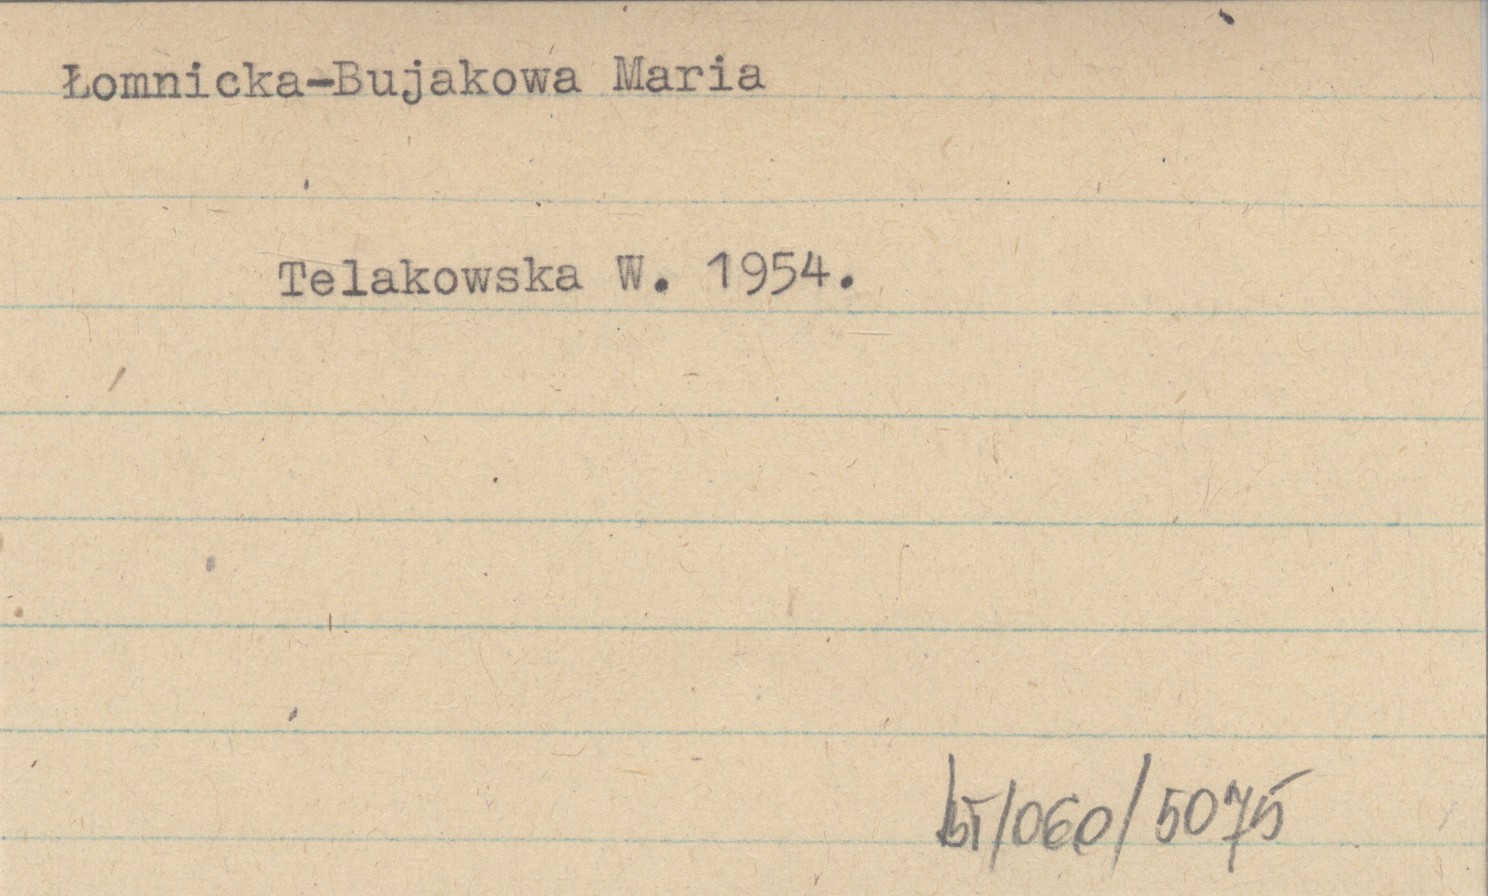 Łomnicka-Bujakowa Maria
Telakowska W. 1954.
/060/5075